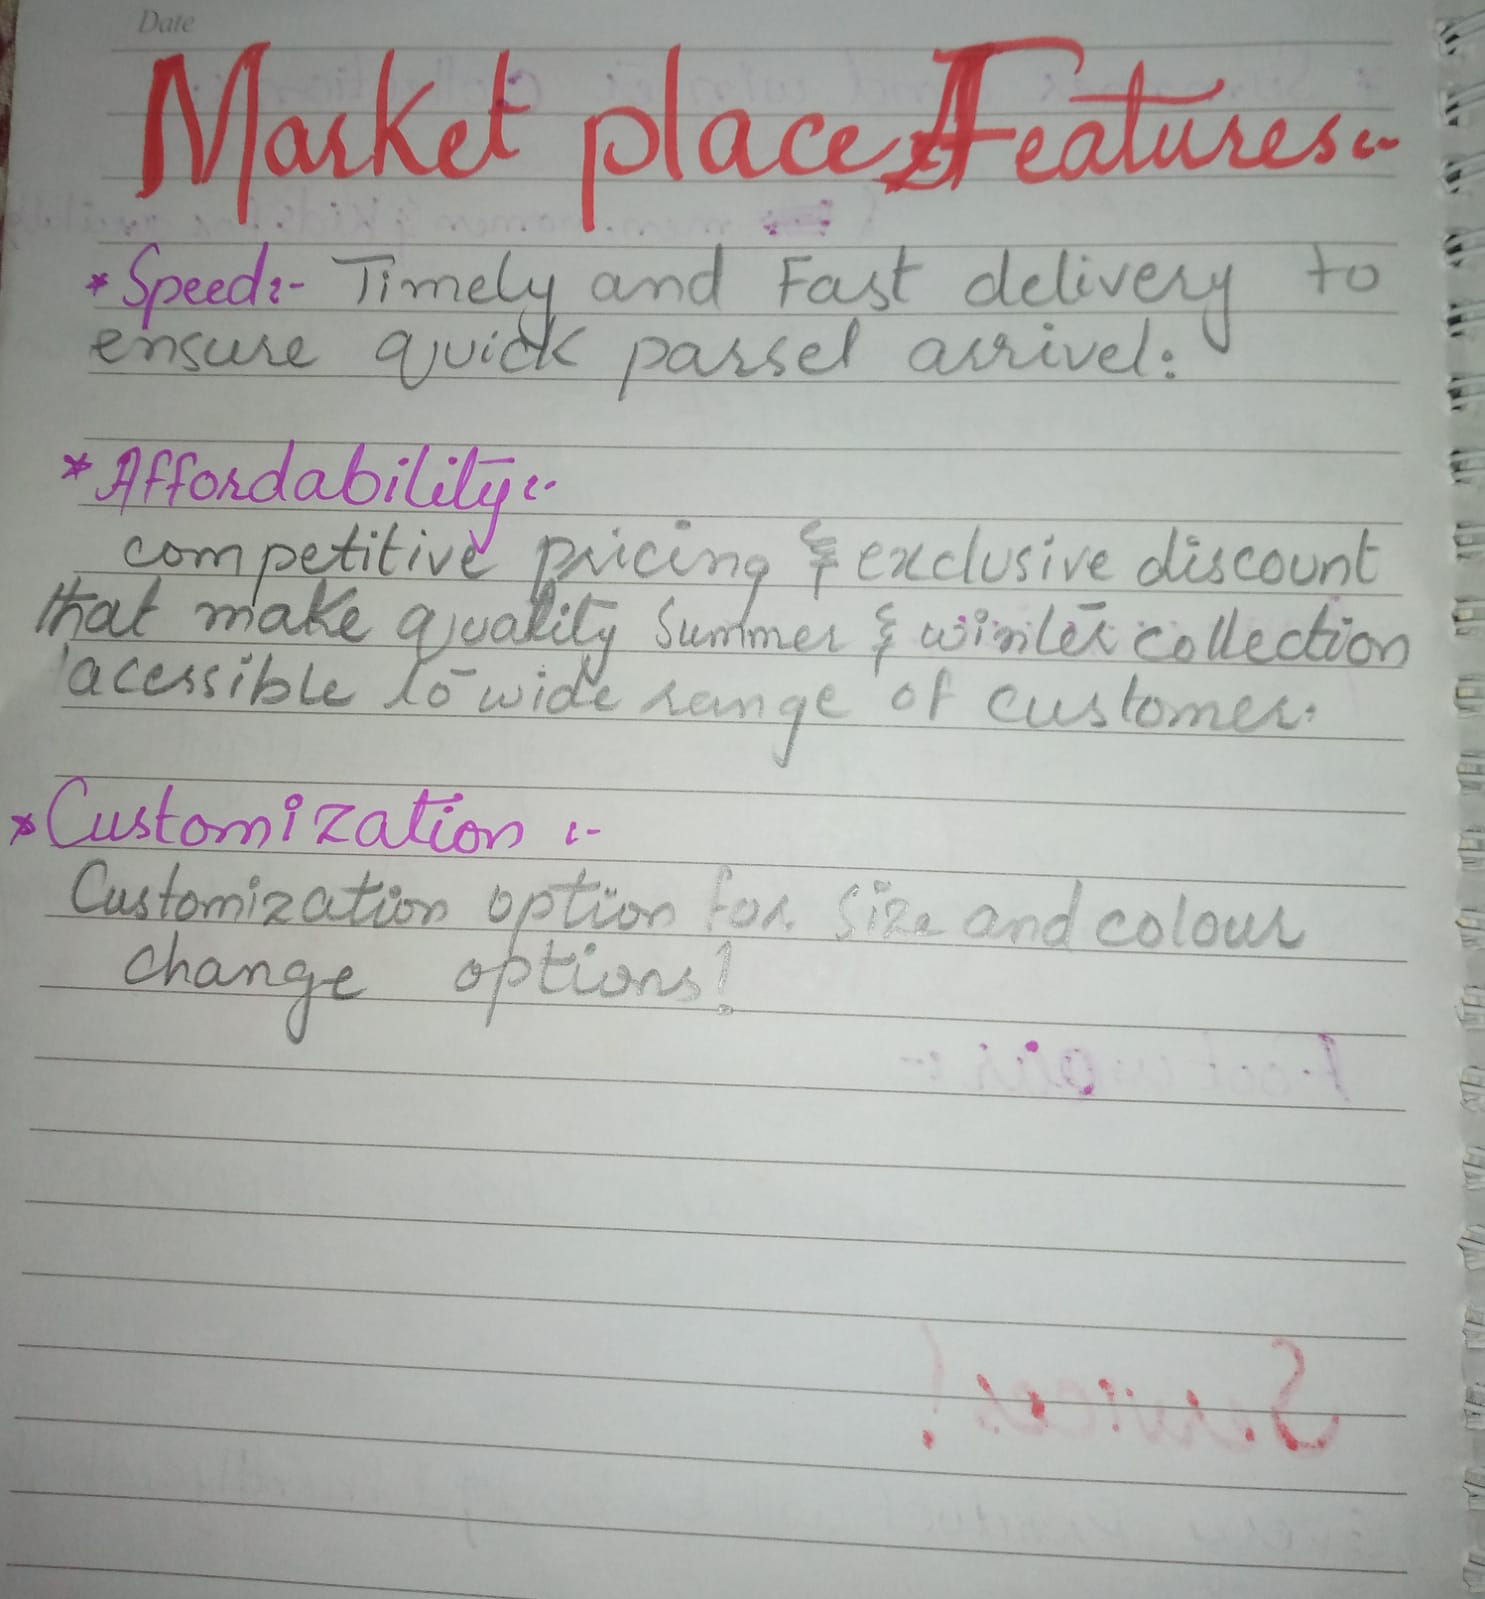 Date
Market place Features:-
* Speed:- Timely and Fast delivery to
ensure quick parsel arrivel:
* Affordability:-
competitive pricing & exclusive discount
that make quality Summer & winter collection
acessible to wide range of customer.
* Customization :-
Customization option for size and colour
change options!
Footwair :-
Services!